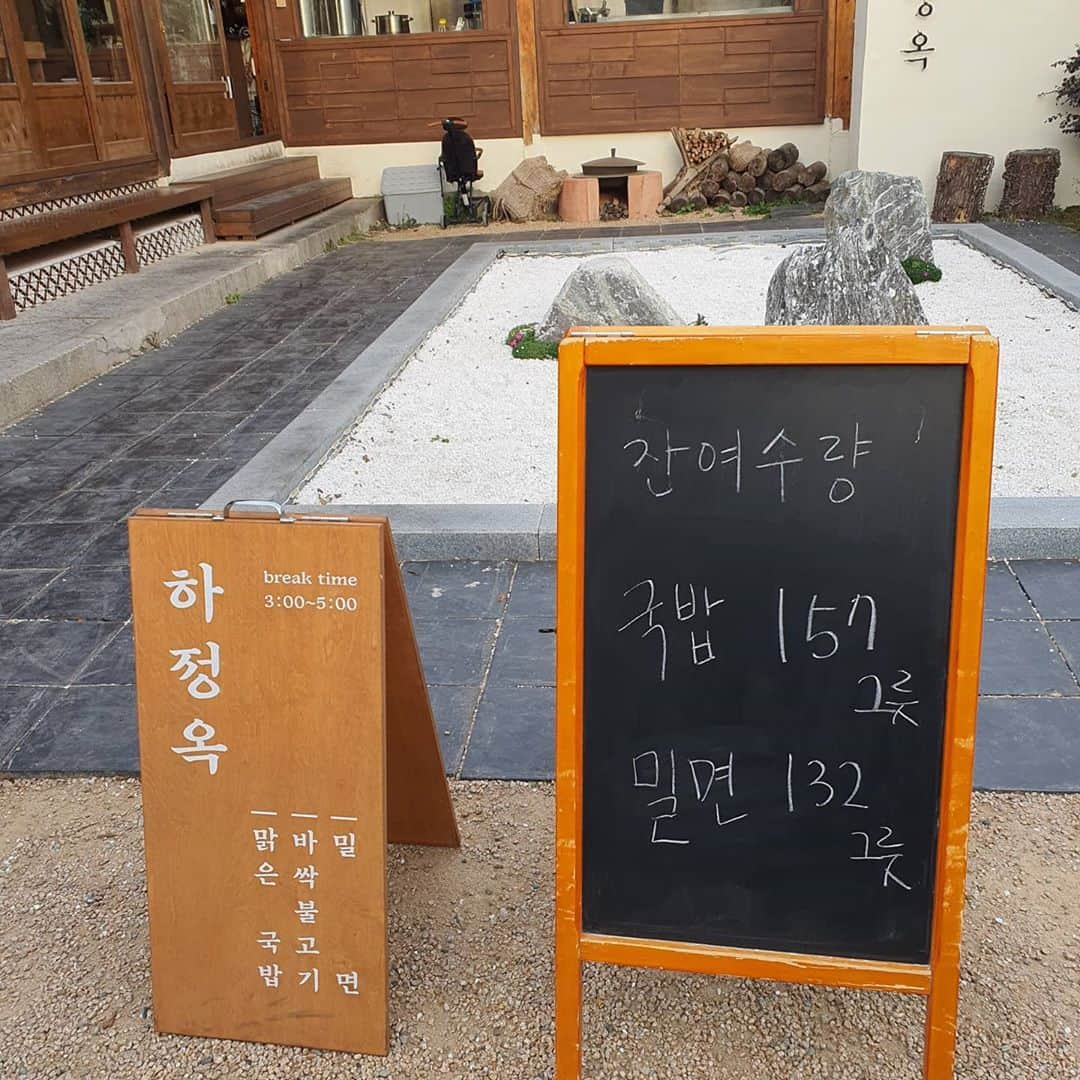 옥
하정옥
break time
3:00~5:00
맑은 국밥
바싹불고기
밀면
잔여수량
국밥 157
그릇
밀면 132
그릇